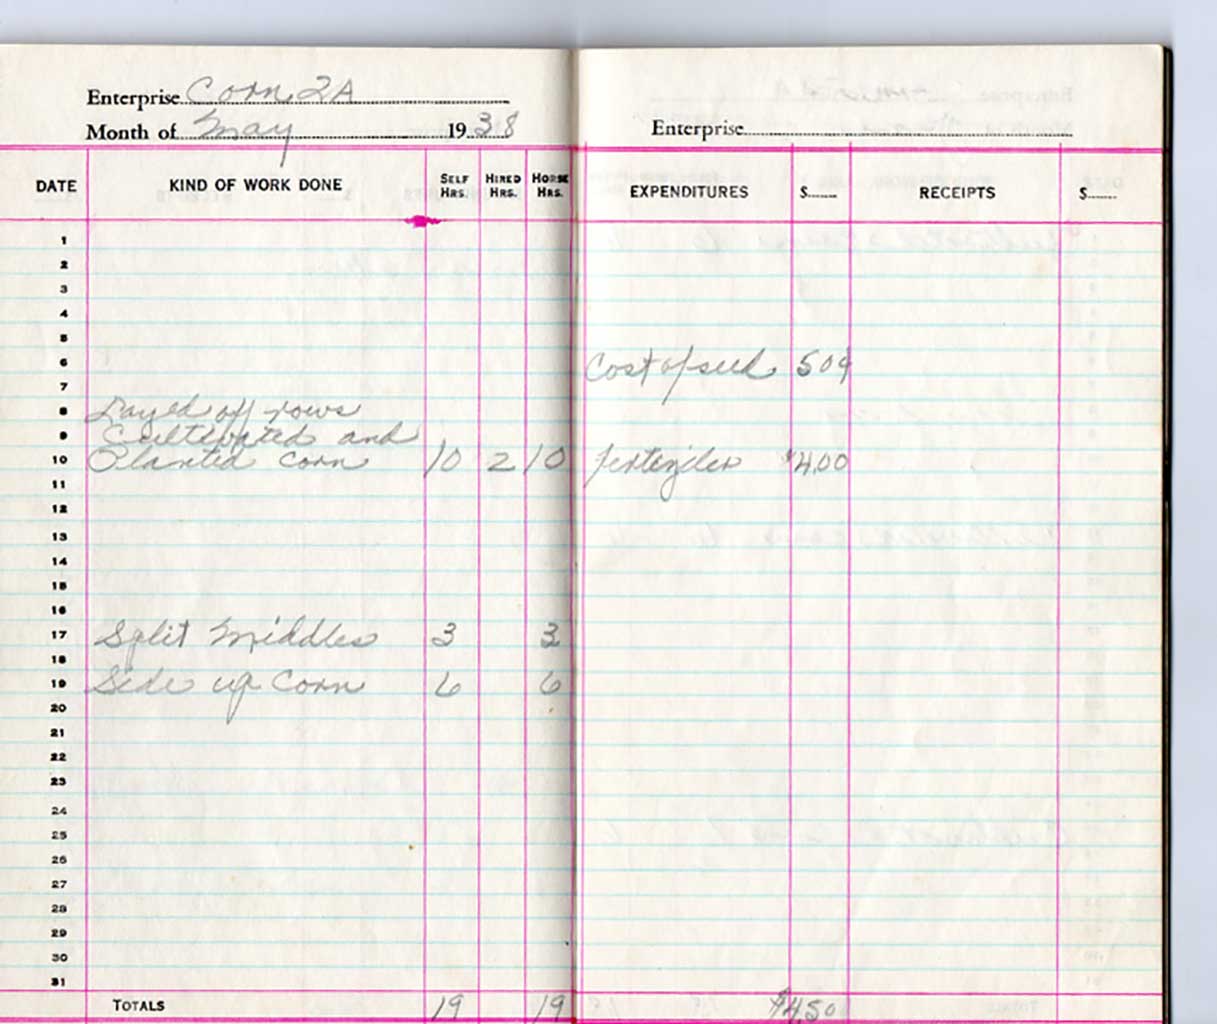 Enterprise Corn 2A
Month of May 1938
Enterprise
DATE KIND OF WORK DONE SELF HRS. HIRED HRS. HORSE HRS. EXPENDITURES $ RECEIPTS $
1
2
3
4
5
6 Cost of seed 50¢
7
8 Layed off rows
9 Cultivated and
10 Planted corn 10 2 10 fertizler $4.00
11
12
13
14
15
16
17 Split Middles 3 3
18
19 Side up Corn 6 6
20
21
22
23
24
25
26
27
28
29
30
31
TOTALS 19 19 $4.50